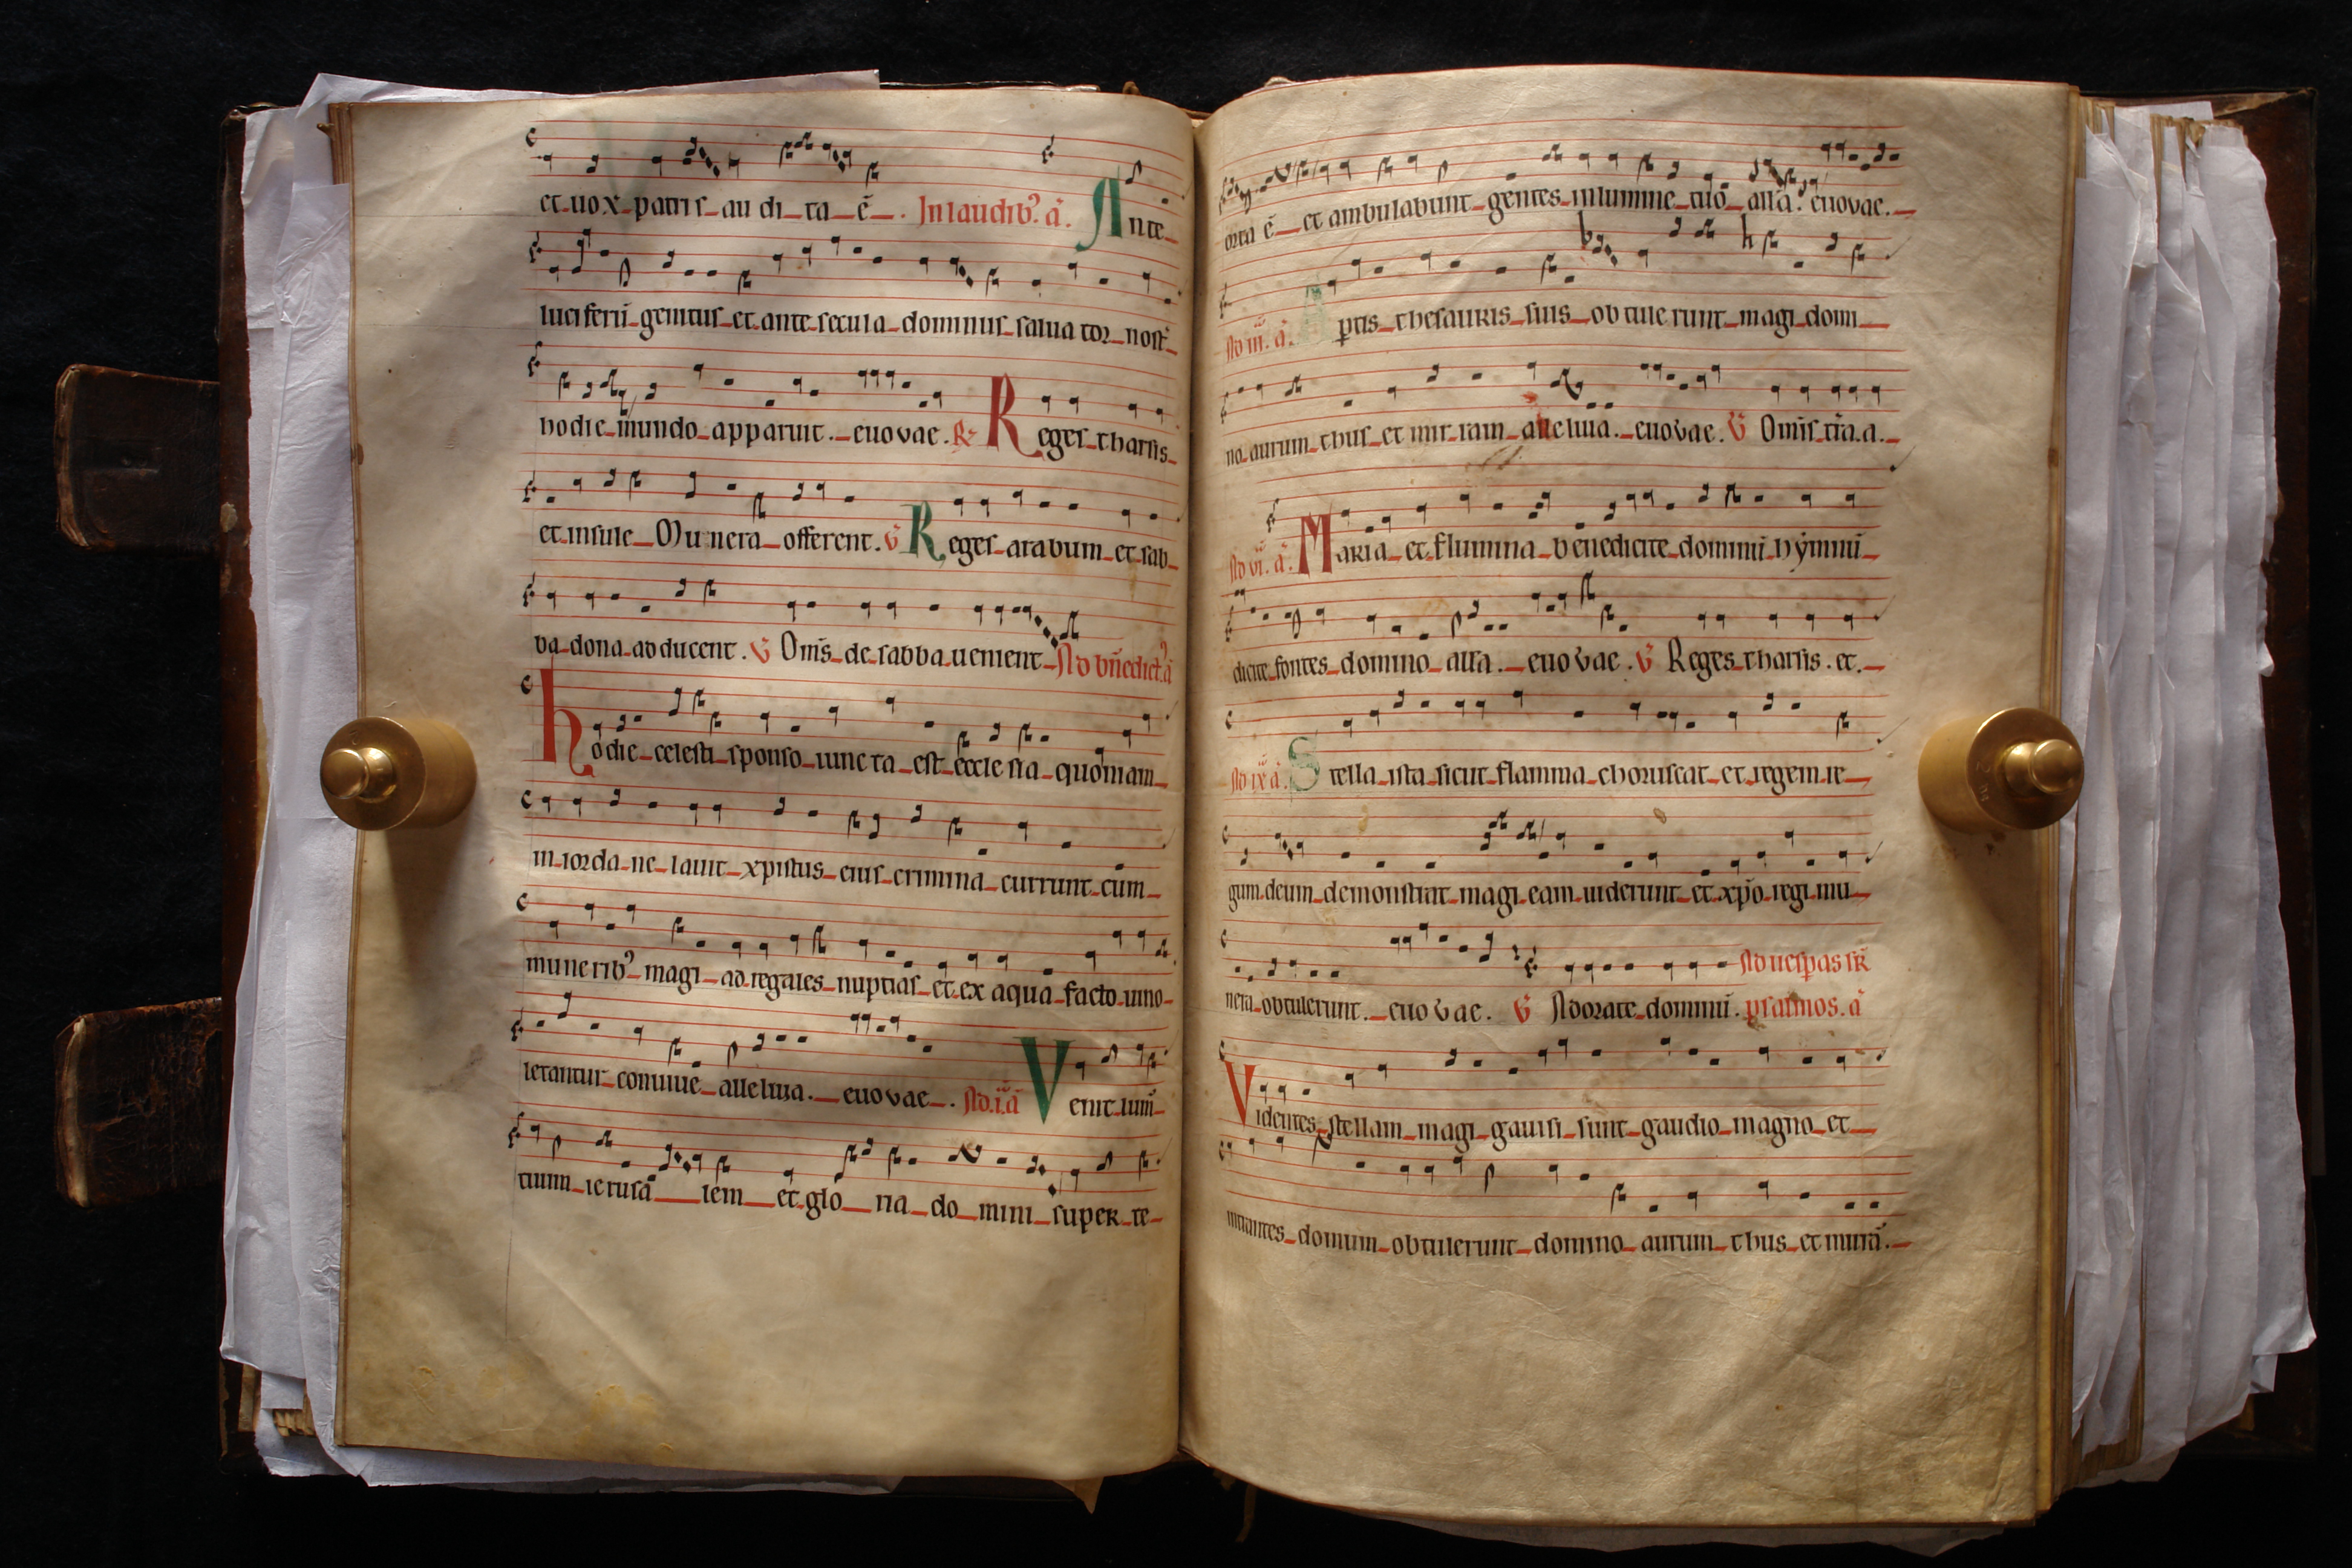 et uox patris au di ta ē. In laudibꝰ. a̅. Ante
luciferū genitus et ante secula dominus salua tor nost̅
hodie mundo apparuit. euovae. R̷ Reges tharsis
et insule Munera offerent. V̅ Reges arabum et sab
ba dona adducent. V̅ Om̅s de sabba uenient Ad bn̅edict̅ꝰ a̅
hodie celesti sponso iuncta est ecclesia quoniam
in iordane lauit xpistus eius crimina currunt cum
muneribꝰ magi ad regales nuptias et ex aqua facto uino
letantur conuiue alleluia. euovae. Ad .i. a̅ Venit lum̅
tuum ierusa lem et glo ria do mini super te
orta ē et ambulabunt gentes in lumine tuo all̅a. euovae.
Ad iii. a̅. Aꝑtis thesauris suis obtulerunt magi domi
no aurum thus et mirram alleluia. euovae. V̅ Om̅is t̅ra. a.
Ad vi. a̅. Maria et flumina benedicite dominū hẏmnū
dicite fontes domino all̅a. euovae. V̅ Reges tharsis. et.
Ad ix a̅. Stella ista sicut flamma choruscat et regem re
gum deum demonstrat magi eam uiderunt et xp̅o regi mu
nera obtulerunt. euovae. V̅ Adorate dominū. Ad uesꝑas sr̅
psalmos. a̅
Videntes stellam magi gauisi sunt gaudio magno et
intrantes domum obtulerunt domino aurum thus et mirrā.